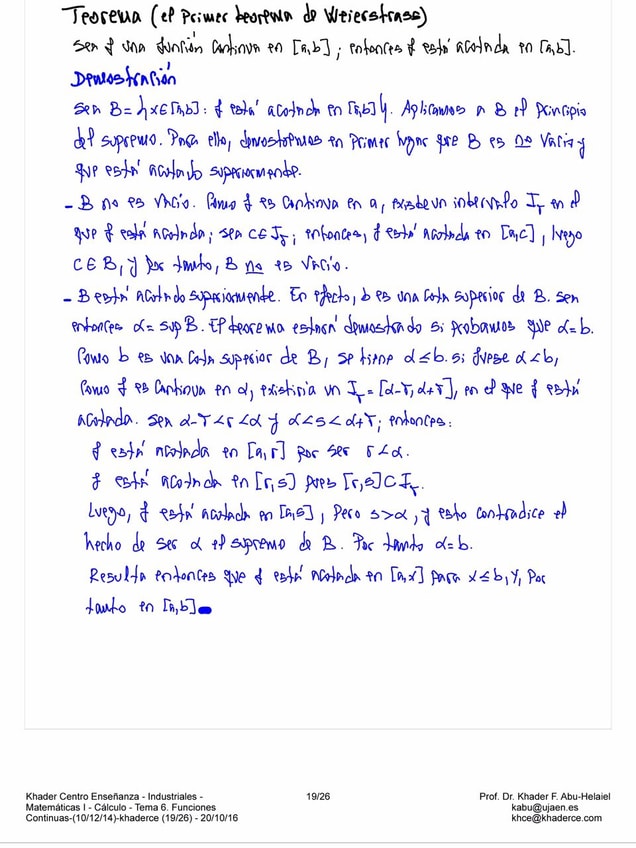 Teorema (el Primer teorema de Weierstrass)
Sea f una función continua en [a,b]; entonces f está acotada en [a,b].
Demostración
Sea B={x∈[a,b]: f está acotada en [a,b]}. Aplicamos a B el principio
del supremo. Para ello, demostremos en primer lugar que B es no vacío y
que está acotado superiormente.
- B no es vacío. Como f es continua en a, existe un intervalo Iᵣ en el
que f está acotada; sea c∈Iᵣ; entonces, f está acotada en [a,c], luego
c∈B, y por tanto, B no es vacío.
- B está acotado superiormente. En efecto, b es una cota superior de B. sea
entonces α=sup B. El teorema estará demostrado si probamos que α=b.
Como b es una cota superior de B, se tiene α≤b. si fuese α<b,
como f es continua en α, existiría un Iᵣ=[α-r,α+r], en el que f está
acotada. Sea α-r<r<α y α<s<α+r; entonces:
f está acotada en [a,r] por ser r<α.
f está acotada en [r,s] pues [r,s]⊂Iᵣ.
Luego, f está acotada en [a,s], pero s>α, y esto contradice el
hecho de ser α el supremo de B. Por tanto α=b.
Resulta entonces que f está acotada en [a,x] para x≤b, y, por
tanto en [a,b]
Khader Centro Enseñanza - Industriales -
Matemáticas I - Cálculo - Tema 6. Funciones
Continuas-(10/12/14)-khaderce (19/26) - 20/10/16
19/26
Prof. Dr. Khader F. Abu-Helaiel
kabu@ujaen.es
khce@khaderce.com